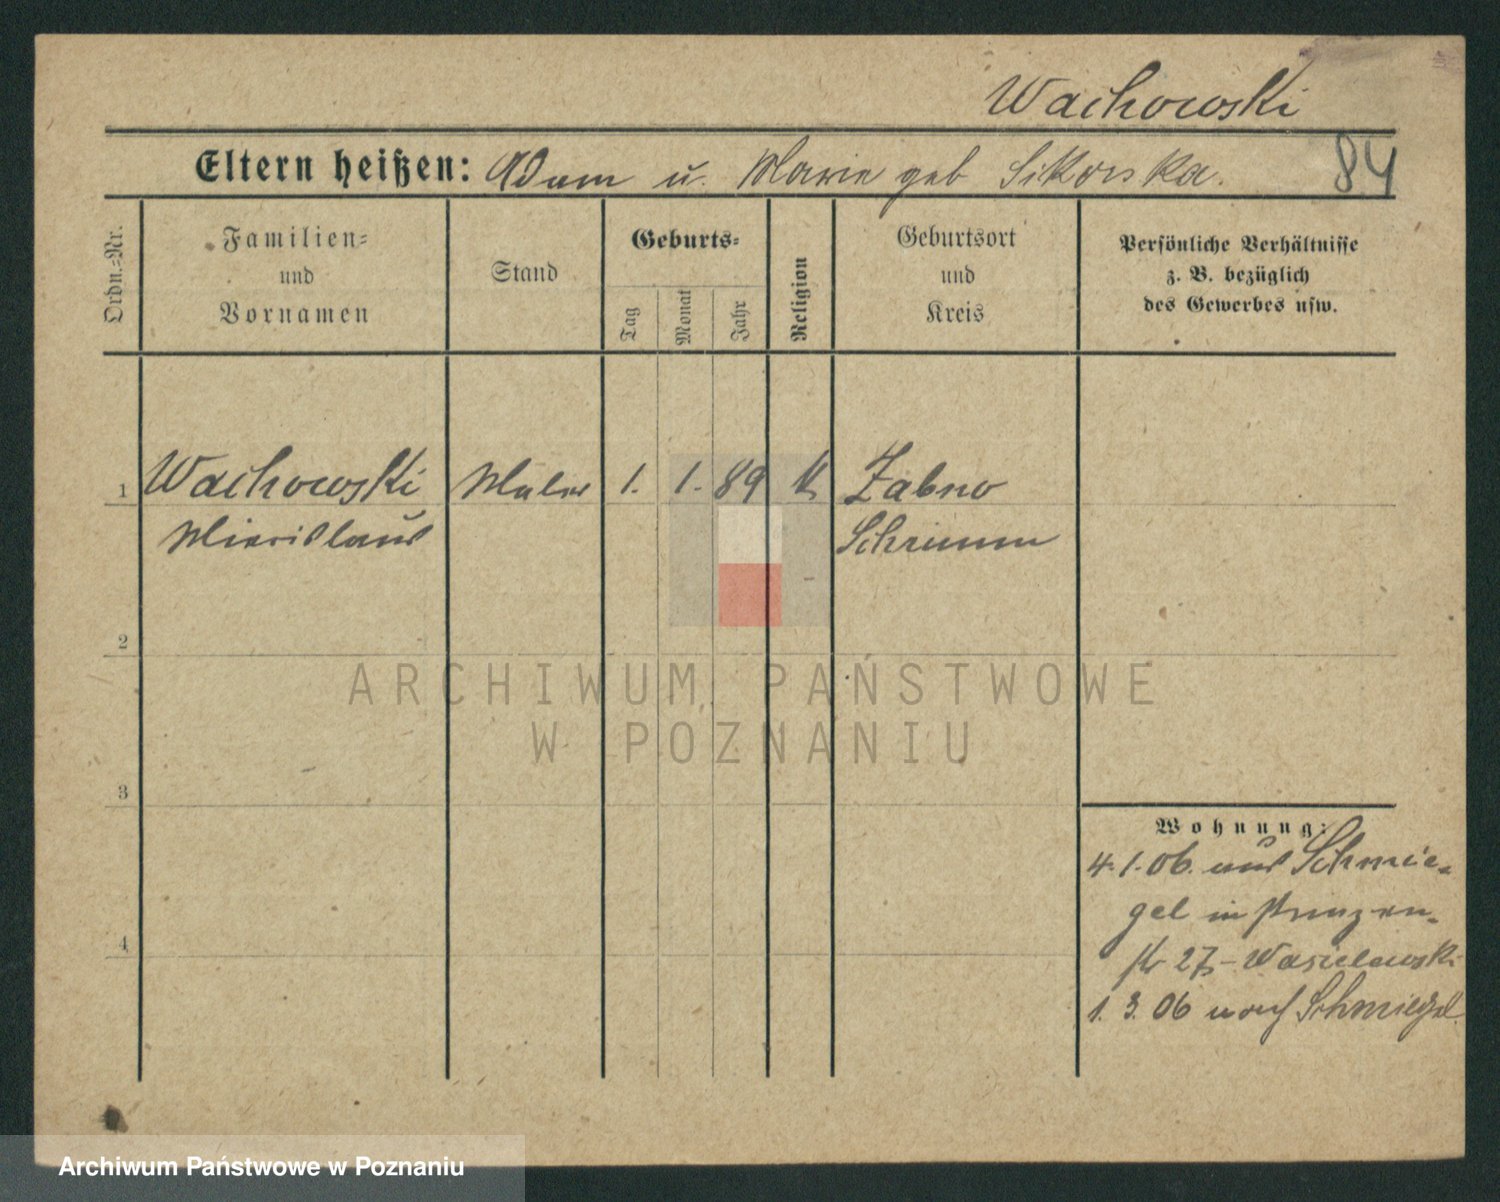 Wachowski
Eltern heißen: Adam u. Marie geb Sikorska.
84
Ordn.-Nr.
Familien-
und
Vornamen
Stand
Geburts-
Tag
Monat
Jahr
Religion
Geburtsort
und
Kreis
Persönliche Verhältnisse
z. B. bezüglich
des Gewerbes usw.
1 Wachowski Maler 1. 1. 89 k Zabno
Miecislaus Schrimm
2
ARCHIWUM PAŃSTWOWE
W POZNANIU
3
Wohnung:
4. 1. 06. aus Schmie-
gel in Prinzen-
4
str 27 - Wasielewski
1. 3. 06 nach Schmiegel
Archiwum Państwowe w Poznaniu